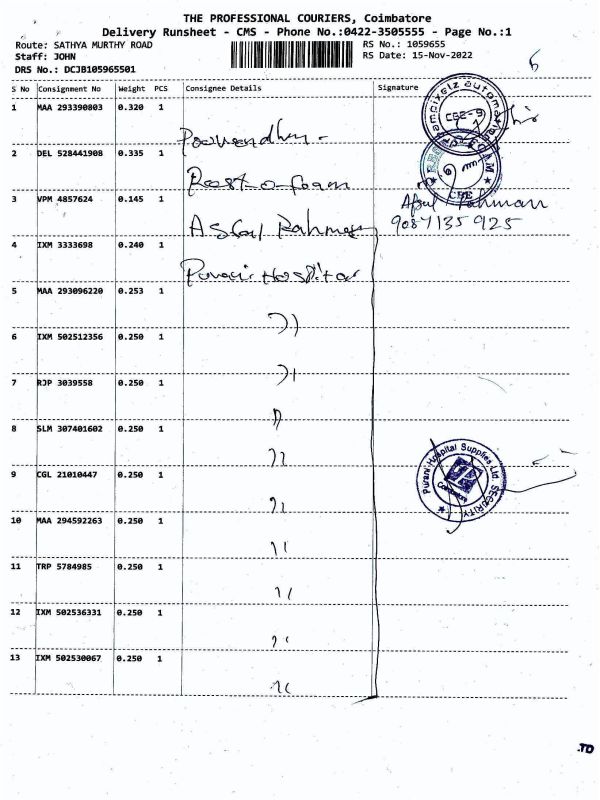 THE PROFESSIONAL COURIERS, Coimbatore
Delivery Runsheet - CMS - Phone No.:0422-3505555 - Page No.:1
Route: SATHYA MURTHY ROAD RS No.: 1059655
Staff: JOHN RS Date: 15-Nov-2022
DRS No.: DCJB105965501
6
S No Consignment No Weight PCS Consignee Details Signature
1 MAA 293390803 0.320 1
CBE-9
2 DEL 528441908 0.335 1 Rest-o-foam
CBE
3 VPM 4857624 0.145 1 Rahman
9087135925
4 IXM 3333698 0.240 1 Hospital
5 MAA 293096220 0.253 1 ))
6 IXM 502512356 0.250 1 ))
7 RJP 3039558 0.250 1 ))
8 SLM 307401602 0.250 1 ))
Purani Hospital Supplies Ltd. SECURITY
Coimbatore
9 CGL 21010447 0.250 1 ))
10 MAA 294592263 0.250 1 ))
11 TRP 5784985 0.250 1 ))
12 IXM 502536331 0.250 1 ))
13 IXM 502530067 0.250 1 ))
.TD